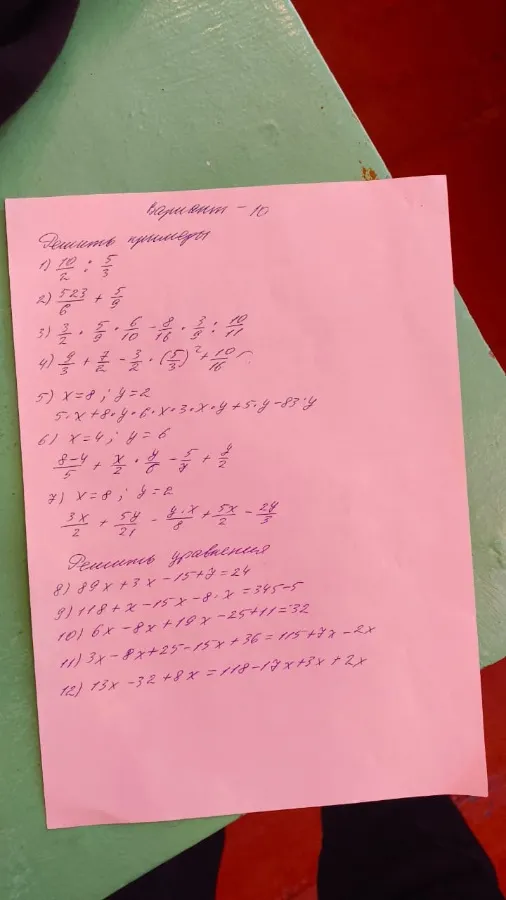 Вариант - 10
Решить примеры
1) 10/2 : 5/3
2) 523/6 + 5/9
3) 3/2 * 5/9 * 6/10 - 8/16 * 3/9 : 10/11
4) 9/3 + 7/2 - 3/2 * (5/3)² + 10/16
5) x=8 ; y=2
5*x+8*y*6*x*3*x*y+5*y-83:y
6) x=4 ; y=6
8-4/5 + x/2 * y/6 - 5/y + y/2
7) x=8 ; y=2
3x/2 + 5y/21 - y*x/8 + 5x/2 - 2y/3
Решить уравнения
8) 89x+3x-15+7=24
9) 118+x-15x-8*x=345-5
10) 6x-8x+19x-25+11=32
11) 3x-8x+25-15x+36=115+7x-2x
12) 13x-32+8x=118-17x+3x+2x